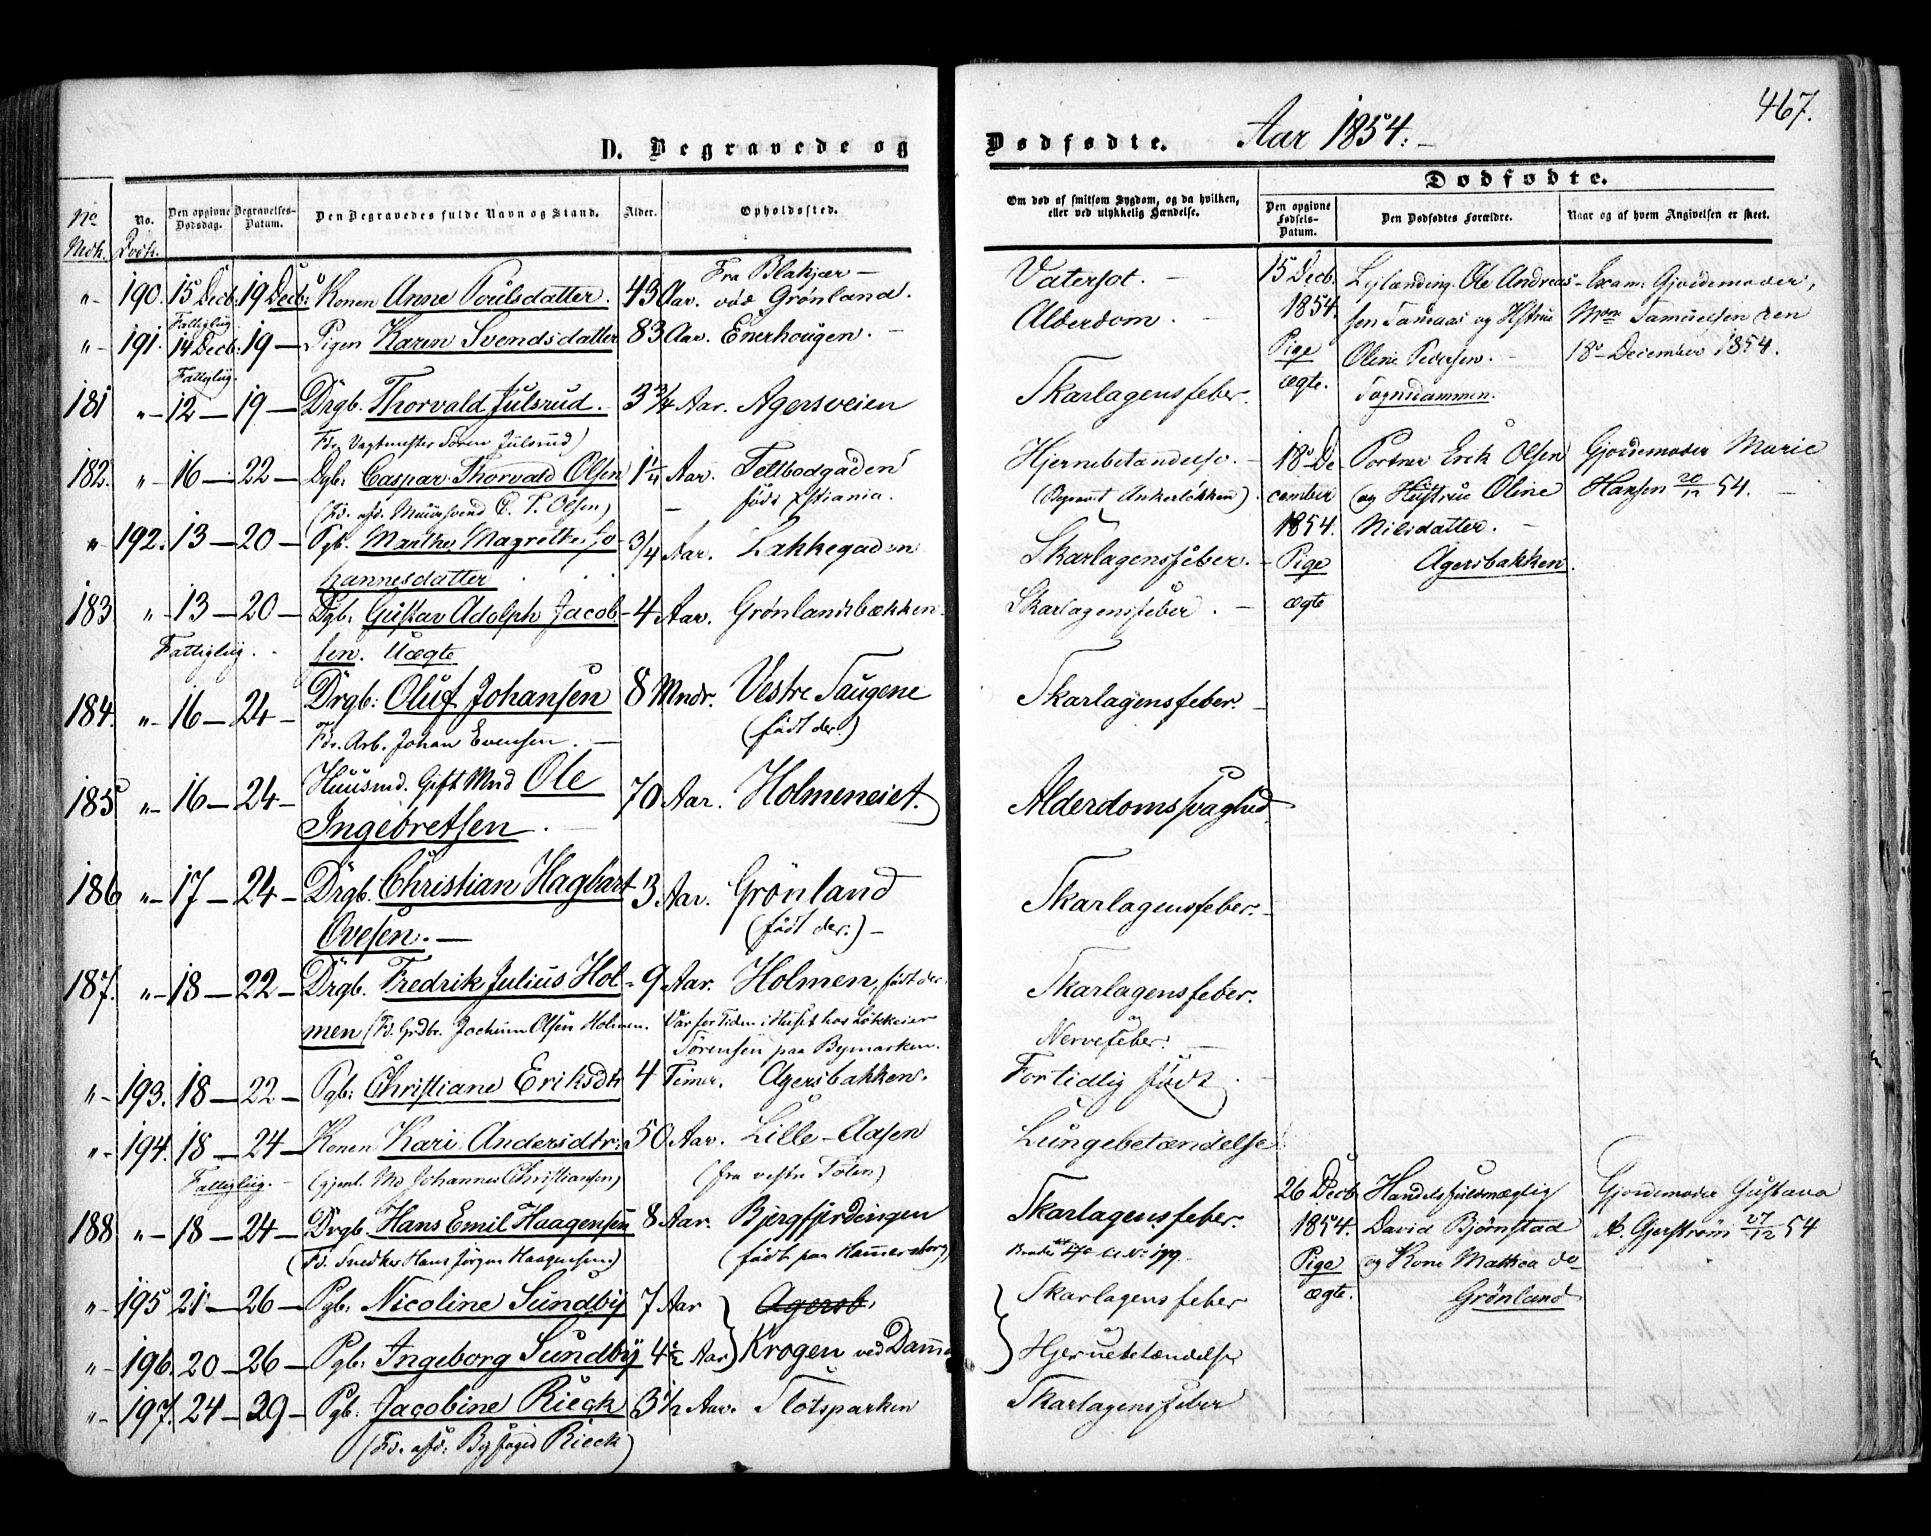 467.
D. Begravede og Dødfødte. Aar 1854.
Dødfødte.
No Mdk. No. Qvdk. Den opgivne Dødsdag. Begravelses-Datum. Den Begravedes fulde Navn og Stand. Alder. Opholdssted. Om død af smitsom Sygdom, og da hvilken, eller ved ulykkelig Hændelse. Den opgivne Fødsels-Datum. Den Dødfødtes Forældre. Naar og af hvem Angivelsen er skeet.
Fra Blakjær
"- 190. 15 Decb. 19 Decb: Konen Anne Poulsdatter. 43 Aar. ved Grønland. Vatersot.
Fattiglig
"- 191. 14 Decb: 19 — Pigen Karen Svendsdatter 83 Aar. Enerhougen. Alderdom.
Fattiglig.
181 "- 12 — 19 — Drgb. Thorvald Julsrud. 3 3/4 Aar. Agersveien Skarlagensfeber.
Fdr Vagtmester Søren Julsrud)
182. "- 16 — 22 — Dgb: Caspar Thorvald Olsen 1 1/4 Aar. Feltbodgaden Hjernebetændelse.
(Fd. afd. Muursvend C. T. Olsen) — født Xstiania. (Begravet Ankerløkken)
"- 192. 13 — 20 — Pgb. Marthe Magrethe Jo- 3/4 Aar. Lakkegaden Skarlagensfeber.
hannesdatter
183 "- 13 — 20 — Dgb: Gustav Adolph Jacob- 4 Aar. Grønlandsbækken Skarlagensfeber.
Fattiglig. sen. Uægte
184. "- 16 — 24 — Drgb: Oluf Johansen 8 Mndr. Vestre Saugene Skarlagensfeber.
Fdr. Arb. Johan Evensen. (født der)
185 "- 16 — 24 — Huusmd. Gift Mnd Ole 70 Aar. Holmeneiet. Alderdomssvaghed
Ingebretsen
186 "- 17 — 24 — Drgb. Christian Hagbart 3 Aar. Grönland Skarlagensfeber.
Ovesen. — (født der.) —
187. "- 18 — 22 — Drgb. Fredrik Julius Hol- 9 Aar. Holmen, født der. Skarlagensfeber.
men (Fd. Grdbr. Jochum Olsen Holmen. Var for Tiden i Huset hos Løkkeier og
Sørensen paa Bymarken. Nervefeber.
"- 193. 18 — 22 — Pgb: Christiane Eriksdtr 4 Timer. Agersbakken. Fortidlig født.
"- 194. 18 — 24 — Konen Kari Andersdtr: 50 Aar. Lille-Aasen Lungebetændelse
Fattiglig. (gjenl. Md Johannes Christiansen) (fra vestre Toten)
188 "- 18 — 24 — Drgb: Hans Emil Haagensen 8 Aar. Bjergfjerdingen Skarlagensfeber.
(Fd. Snedker Hans Jørgen Haagensen.) (født paa Hammersborg)
"- 195 21 — 26 — Pgb: Nicoline Sundby 7 Aar Agersb. Skarlagensfeber
"- 196. 20 — 26 — Pgb: Ingeborg Sundby 4 1/2 Aar Krogen ved og Hjernebetændelse
"- 197. 24 — 29 — Pgb: Jacobine Rieck 3 1/2 Aar. Slotsparken Skarlagensfeber
(Fd. afd: Byfoged Rieck)
15 Decb. Ole Andreas- Exam: Gjordemoder,
1854. sen og Hstrue Mdm Samuelsen den
Pige Oline Pedersen. 18 December 1854.
ægte. Sognsdammen.
18 De- Portner Erik Olsen Gjordemoder Marie
cember (og Hustrue Oline Hansen 20/12 54.
1854. Nilsdatter.
Pige Agersbakken.
ægte
26 Decb. Handelsfuldmægtig Gjordemoder Gustava
1854. David Bjørnstad A. Gjerstrøm 27/12 54
Pige og Kone Mathea do
ægte. Grønland